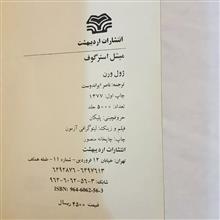 انتشارات اردیبهشت
میشل استرگوف
ژول ورن
ترجمه: ناصر ایراندوست
چاپ اول: ۱۳۷۷
تعداد: ۵۰۰۰ جلد
حروفچینی: پلیکان
فیلم و زینک: لیتوگرافی آرمون
چاپ: چاپخانه منصور
انتشارات اردیبهشت
تهران: خیابان ۱۲ فروردین - شماره ۱۱ - طبقه همکف
۶۴۹۲۸۷۶ - ۶۴۹۷۶۱۳
شابک: ۳-۵۶-۶۰۶۲-۹۶۴
ISBN: 964-6062-56-3
قیمت ۴۵۰۰ ریال